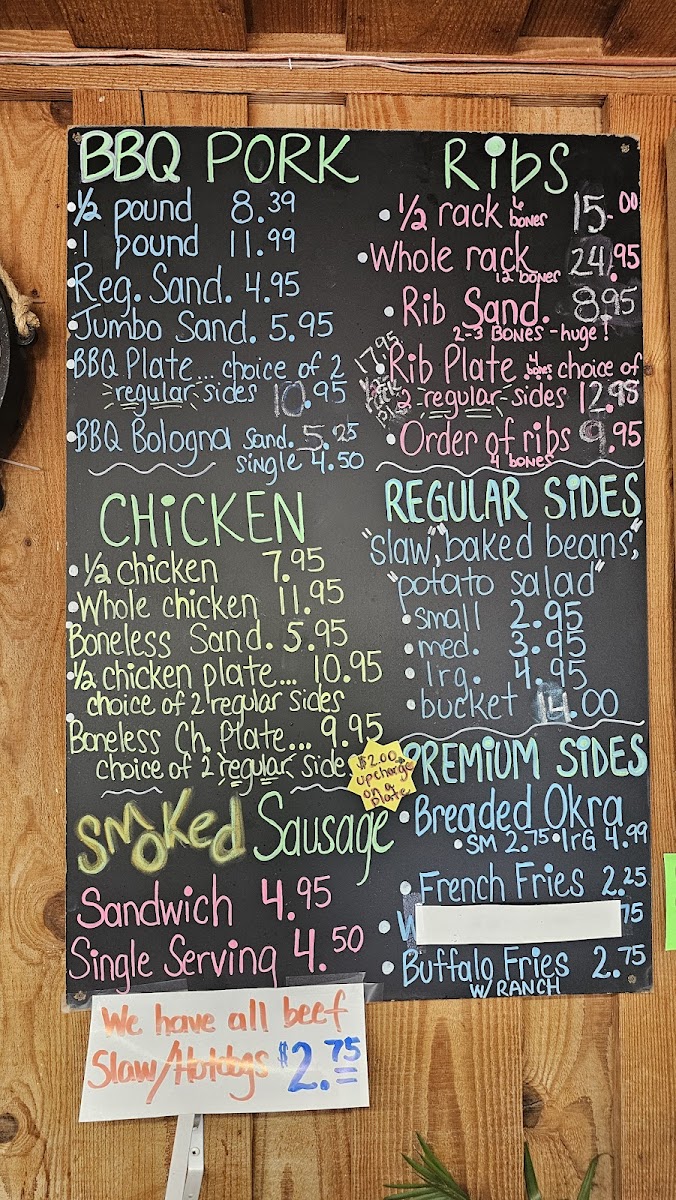 BBQ PORK
½ pound 8.39
1 pound 11.99
Reg. Sand. 4.95
Jumbo Sand. 5.95
BBQ Plate... choice of 2
regular sides 10.95
BBQ Bologna Sand. 5.25
single 4.50
CHiCKEN
½ chicken 7.95
Whole chicken 11.95
Boneless Sand. 5.95
½ chicken plate... 10.95
choice of 2 regular sides
Boneless Ch. Plate... 9.95
choice of 2 regular sides
SMOKed Sausage
Sandwich 4.95
Single Serving 4.50
We have all beef
Slaw/Hotdogs $2.75
Ribs
½ rack 6 bones 15.00
Whole rack 24.95
12 bones
Rib Sand. 8.95
2-3 BONES - huge!
17.95
Rib Plate 4 bones choice of
2 regular sides 12.98
Order of ribs 9.95
4 bones
REGULAR SiDES
"slaw", baked beans,"
"potato salad"
small 2.95
med. 3.95
lrg. 4.95
bucket 14.00
PREMIUM SiDES
$2.00
upcharge
on a
plate
Breaded Okra
SM 2.75 lrG 4.99
French Fries 2.25
W 75
Buffalo Fries 2.75
W/ RANCH